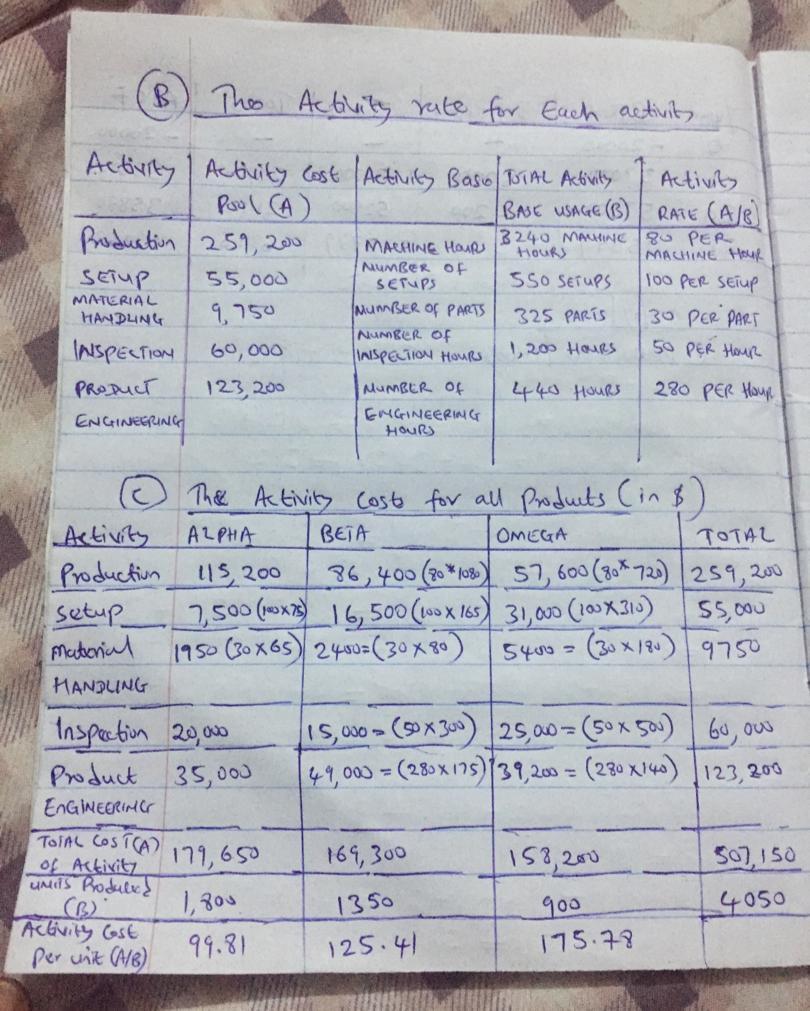 B The Activity rate for Each activity
Activity Activity Cost Activity Base TOTAL Activity Activity
Pool (A) BASE USAGE (B) RATE (A/B)
Production 259,200 MACHINE HOURS 3240 MACHINE HOURS 80 PER MACHINE HOUR
SETUP 55,000 NUMBER OF SETUPS 550 SETUPS 100 PER SETUP
MATERIAL HANDLING 9,750 NUMBER OF PARTS 325 PARTS 30 PER PART
INSPECTION 60,000 NUMBER OF INSPECTION HOURS 1,200 HOURS 50 PER HOUR
PRODUCT 123,200 NUMBER OF 440 HOURS 280 PER HOUR
ENGINEERING ENGINEERING
HOURS
C The Activity Costs for all Products (in $)
Activity ALPHA BETA OMEGA TOTAL
Production 115,200 86,400 (80*1080) 57,600 (80*720) 259,200
Setup 7,500 (100x75) 16,500 (100x165) 31,000 (100x310) 55,000
Material 1950 (30x65) 2400=(30x80) 5400 = (30x180) 9750
HANDLING
Inspection 20,000 15,000 = (50x300) 25,000 = (50x500) 60,000
Product 35,000 49,000 = (280x175) 39,200 = (280x140) 123,200
ENGINEERING
TOTAL COST(A)
of Activity 179,650 169,300 158,200 507,150
UNITS Produced
(B) 1,800 1350 900 4050
Activity Cost
Per unit (A/B) 99.81 125.41 175.78